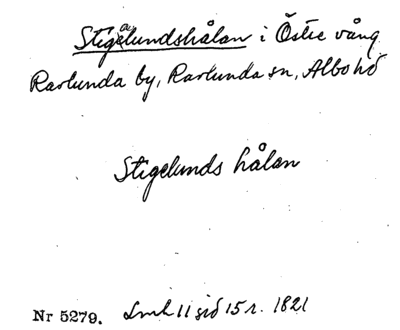 Stigelundshålan i Östre vång
Ravlunda by, Ravlunda sn, Albo hd
Stigelunds hålan
Nr 5279. Lmh 11 sid 15 r. 1821